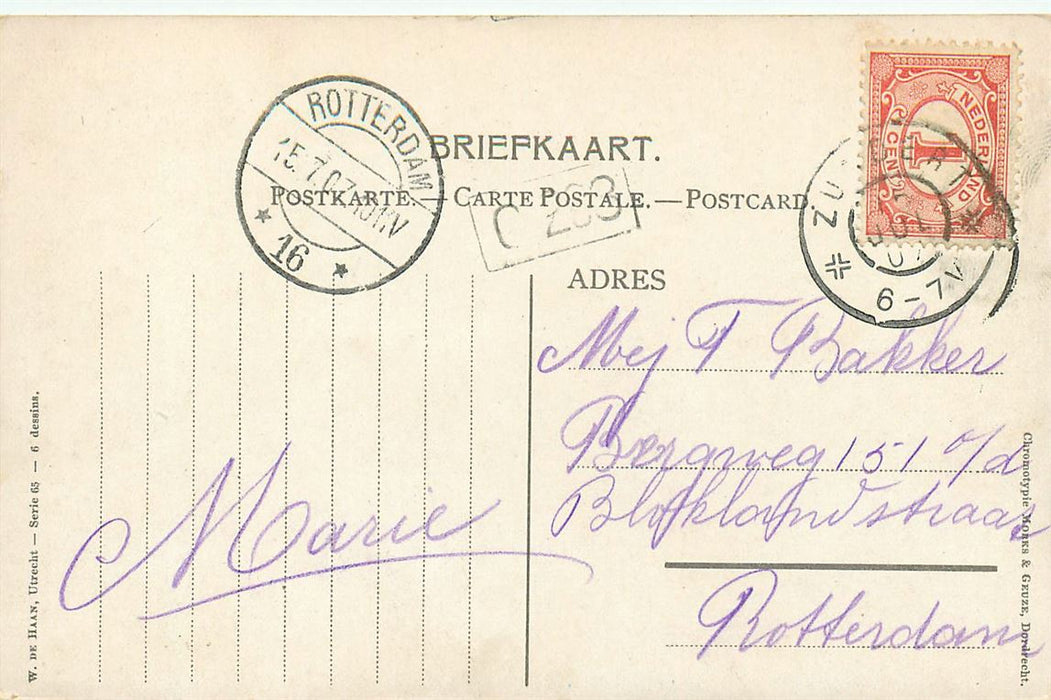 ROTTERDAM
15.7.07
16
BRIEFKAART.
POSTKARTE. — CARTE POSTALE. — POSTCARD.
NEDERLAND
1
CENT
6-7V
ADRES
Mej T Bakker
Bergweg 151 o/d
Bloklandstraat
Rotterdam
Marie
W. DE HAAN, Utrecht — Serie 65 — 6 dessins.
Chromotypie MORKS & GEUZE, Dordrecht.